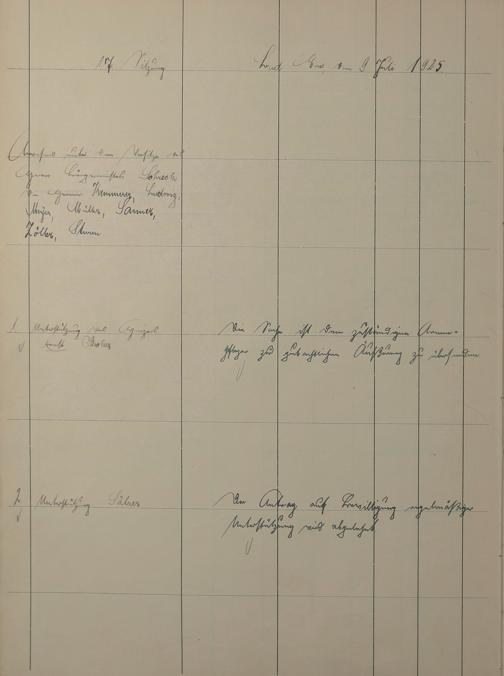 17 Sitzung
den 9 Juli 1925
Anwesend unter dem Vorsitze des
Herrn Bürgermeisters
die Herren Kemmerer, Ludwig,
Meyer, Müller, Sanner,
Zöller, Sturm
1 Unterstützung des
Die Sache ist dem zuständigen Armen-
pfleger zur gutachtlichen Äußerung zu übersenden
2 Unterstützung
Der Antrag auf Bewilligung regelmäßiger
Unterstützung wird abgelehnt